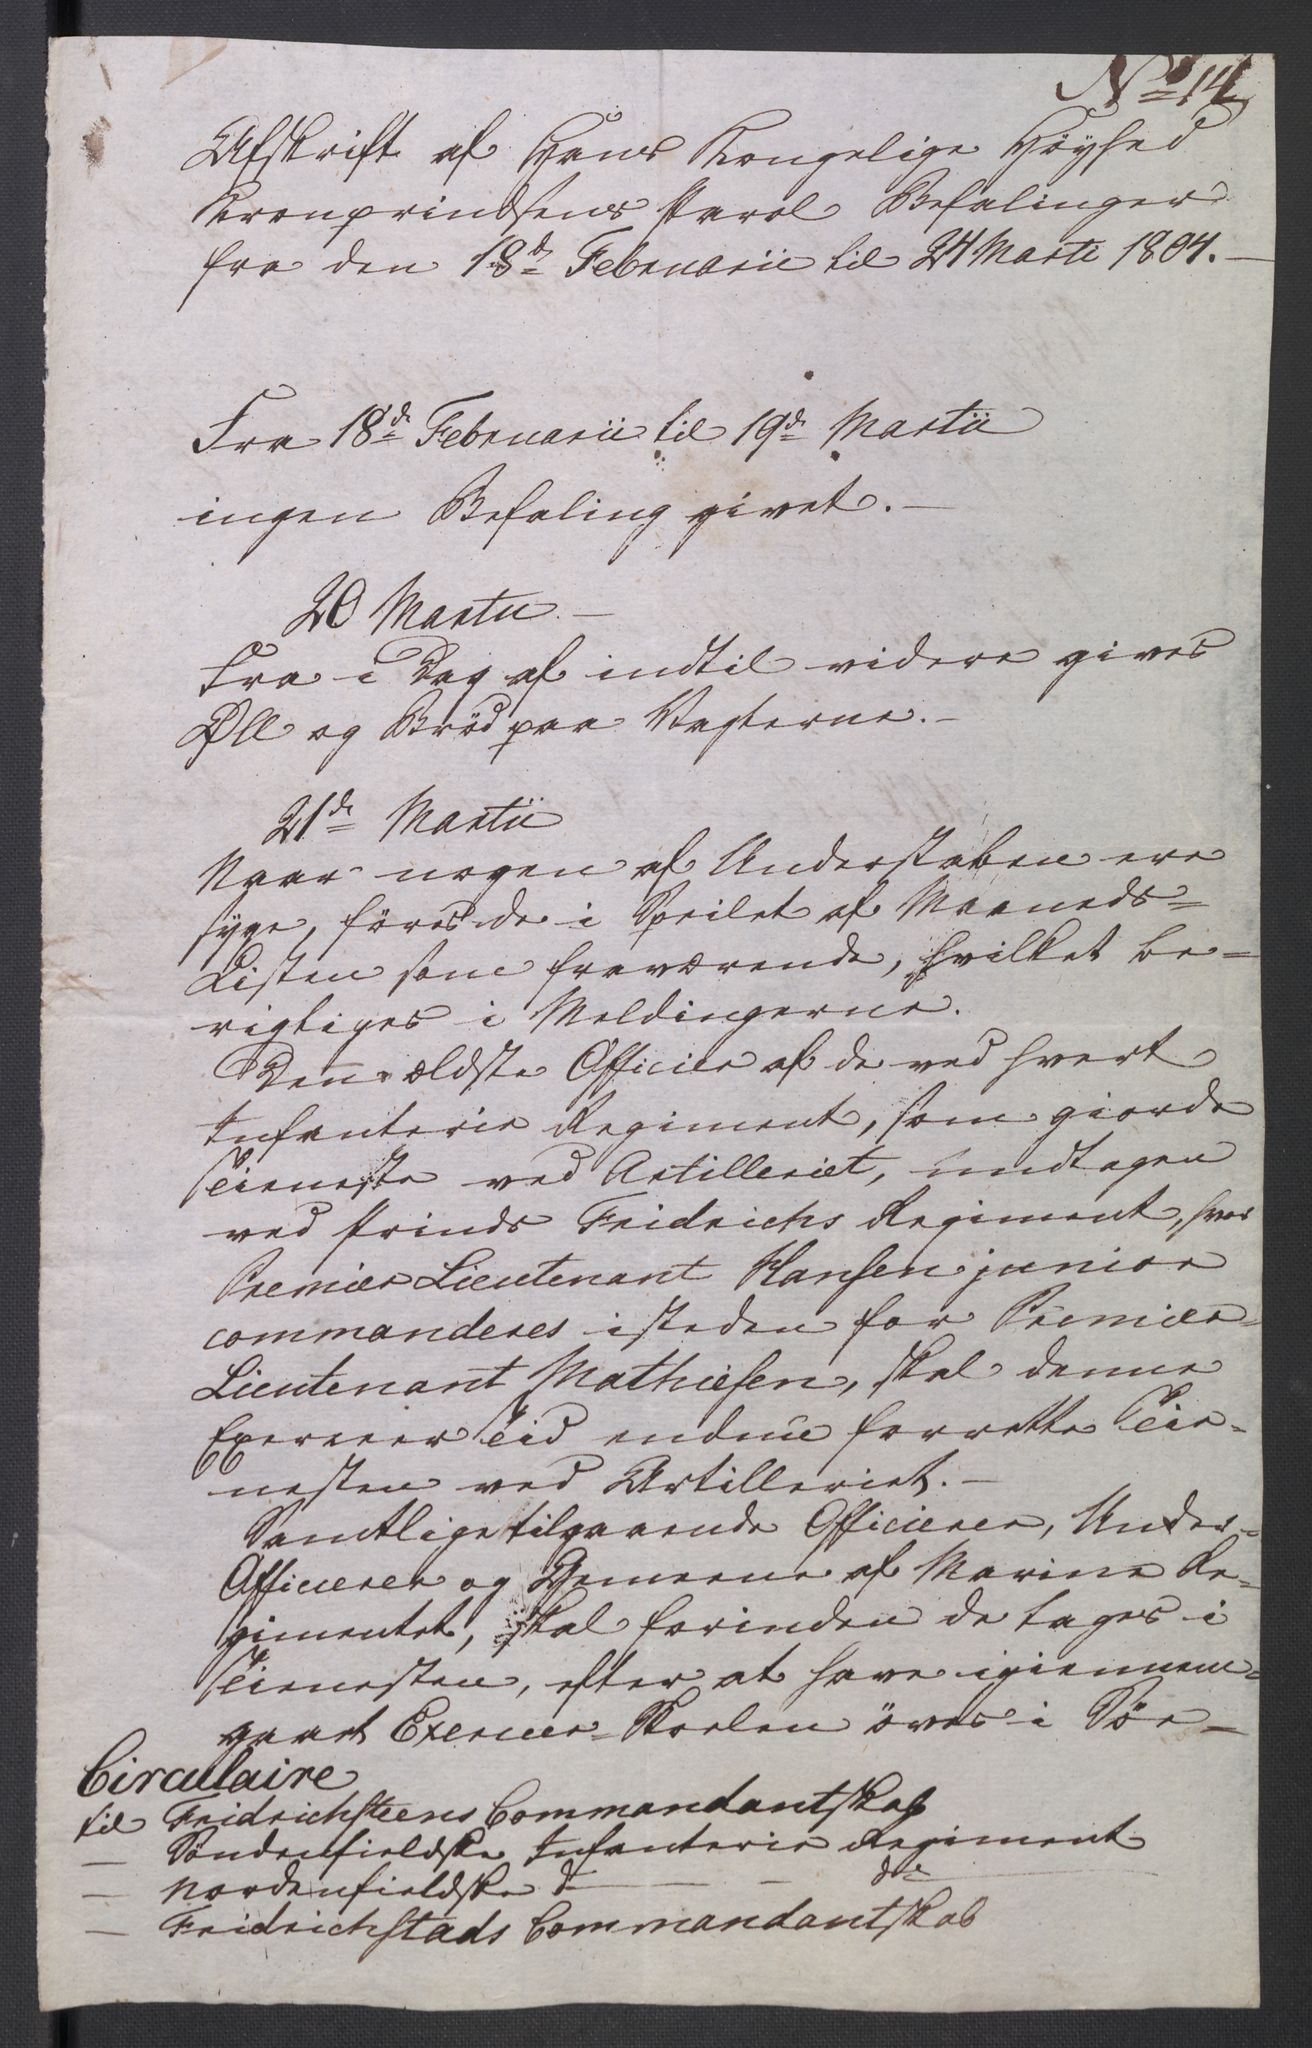 No 14
Afskrift af Hans Kongelige Höyhed
Kronprindsens Parol Befalinger
fra den 18d Februarii til 24 Marti 1804.
Fra 18d Februarii til 19d Martii
ingen Befaling givet.
20 Martii
Fra i Dag af indtil videre gives
Öll og Bröd paa Vagterne.
21d Martii
Naar nogen af Understaben ere
syge, föres de i Speilet af Maaneds-
Listen som fraværende, hvilket be-
rigtiges i Meldingerne.
Den ældste Officier af de ved hvert
Infanterie Regiment, som giorde
Tieneste ved Artilleriet, undtagen
ved Prinds Fridrichs Regiment, hvor
Premier Lieutenant Hansen junior
commanderes isteden for Premier-
Lieutenant Mathiesen, skal denne
Exerceer Tid endnu forrette Tie-
nesten ved Artilleriet.
Samtlige tilgaaende Officierer, Under-
Officierer og Gemeene af Marine Re-
gimentet, skal forinden de tages i
Tienesten, efter at have igiennem-
gaaet Exerceer-Skolen öves i Söe-
Circulaire
til Fridrichsteens Commandantskab
— Söndenfieldske Infanterie Regiment
— Nordenfieldske d— — — do
— Fridrichstads Commandantskab